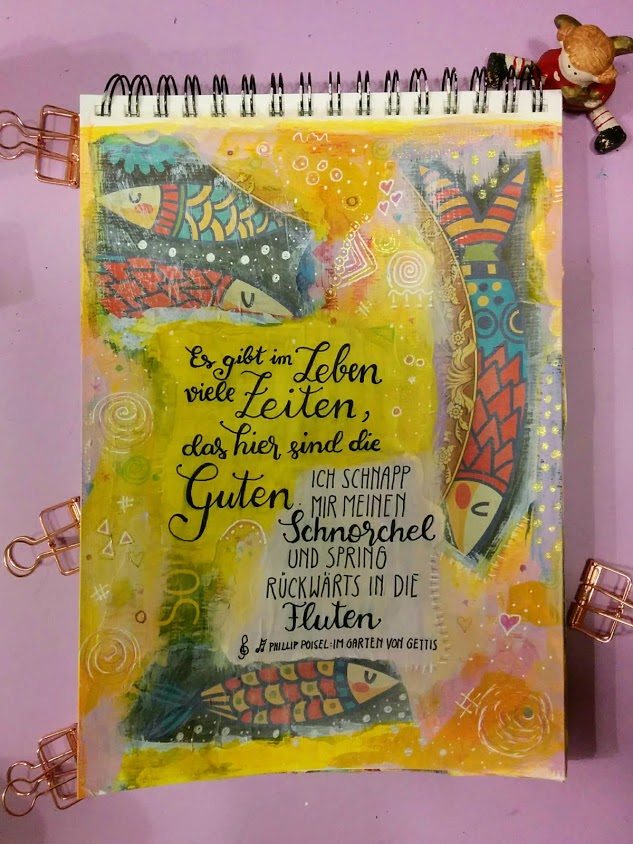 Es gibt im Leben
viele Zeiten,
das hier sind die
Guten.
ICH SCHNAPP
MIR MEINEN
Schnorchel
UND SPRING
RÜCKWÄRTS IN DIE
Fluten
PHILLIP POISEL: IM GARTEN VON GETTIS